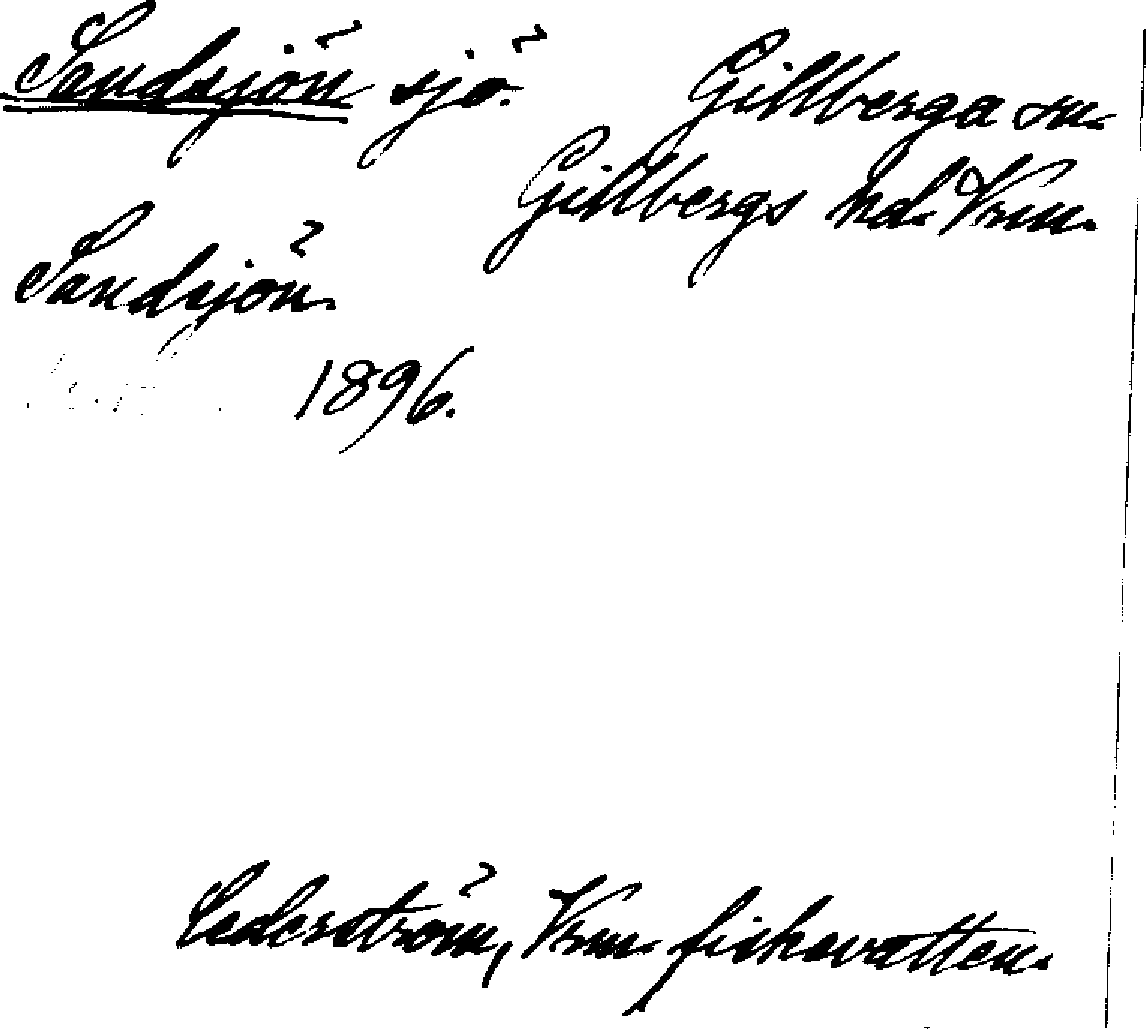 Sandsjön sjö. Gillberga sn.
Gillbergs hd. Vrm.
Sandsjön.
1896.
Cederström, Vrm. fiskevatten.